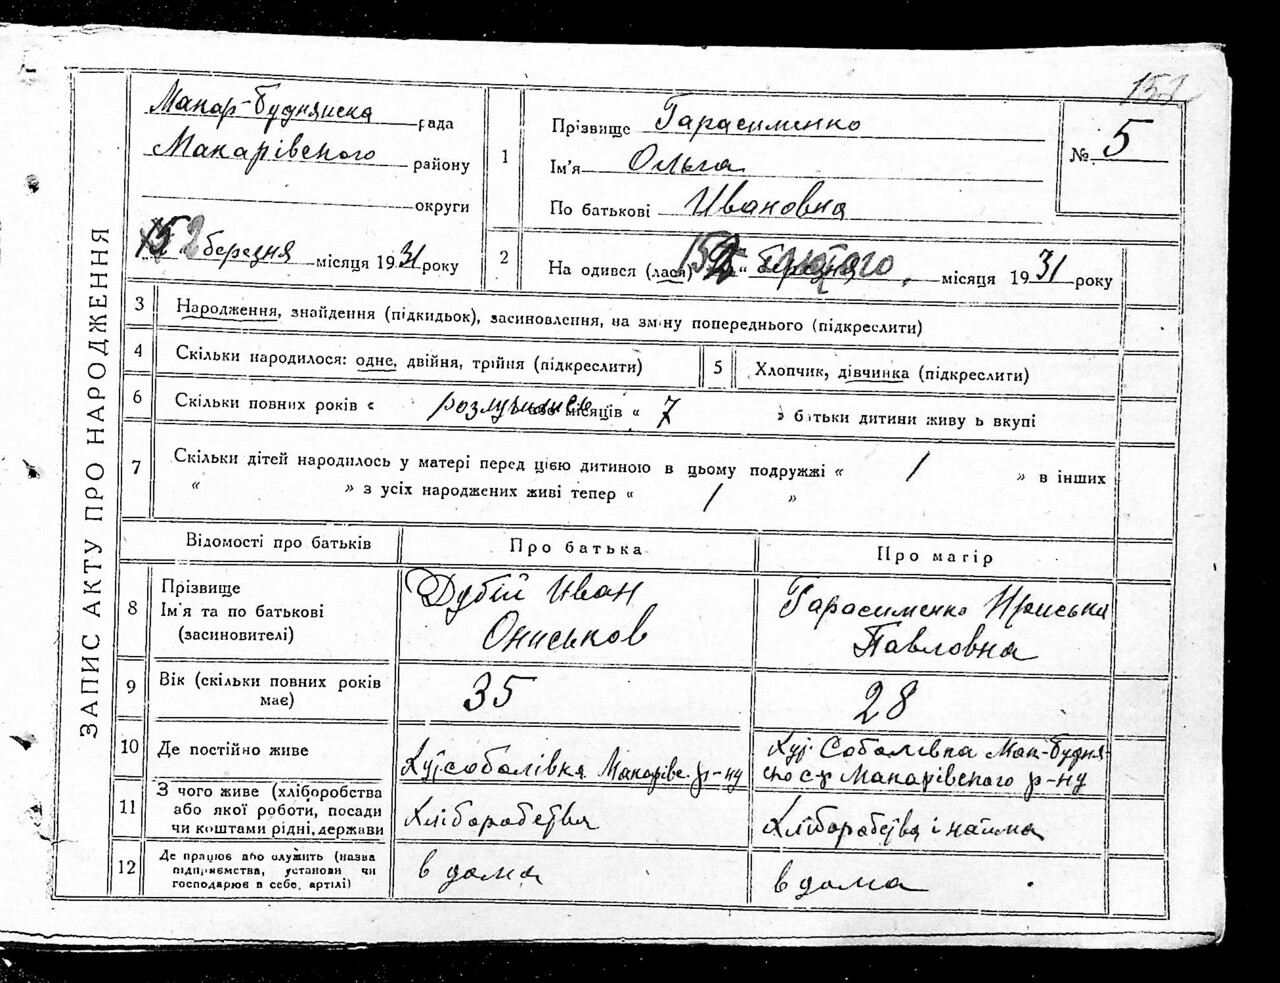 ЗАПИС АКТУ ПРО НАРОДЖЕННЯ
Макар-Буднянска рада
Макарівского району
округи
2 березня місяця 1931 року
1
Прізвище Гарасименко
Ім'я Ольга
По батькові Ивановна
№ 5
2
На одився (лася) лютого місяця 1931 року
3 Народження, знайдення (підкидьок), засиновлення, на зміну попереднього (підкреслити)
4 Скільки народилося: одне, двійня, трійня (підкреслити)
5 Хлопчик, дівчинка (підкреслити)
6 Скільки повних років « розлучились або місяців « 7 » батьки дитини живу ь вкупі
7 Скільки дітей народилось у матері перед цією дитиною в цьому подружжі « 1 » в інших
« » з усіх народжених живі тепер « 1 »
Відомості про батьків
Про батька
Про матір
8 Прізвище
Ім'я та по батькові
(засиновителі)
Дубій Иван
Ониськов
Гарасименко Приська
Павловна
9 Вік (скільки повних років
має)
35
28
10 Де постійно живе
Хуј.соболівка Макарівс. р-ну
Хуј. Соболівка Мак-Будня-
Макарівского р-ну
11 З чого живе (хліборобства
або якої роботи, посади
чи коштами рідні, держави
Хліборобства
Хліборобства і найма
12 Де працює або служить (назва
підприємства, установи чи
господарює в себе, артілі)
в дома
в дома